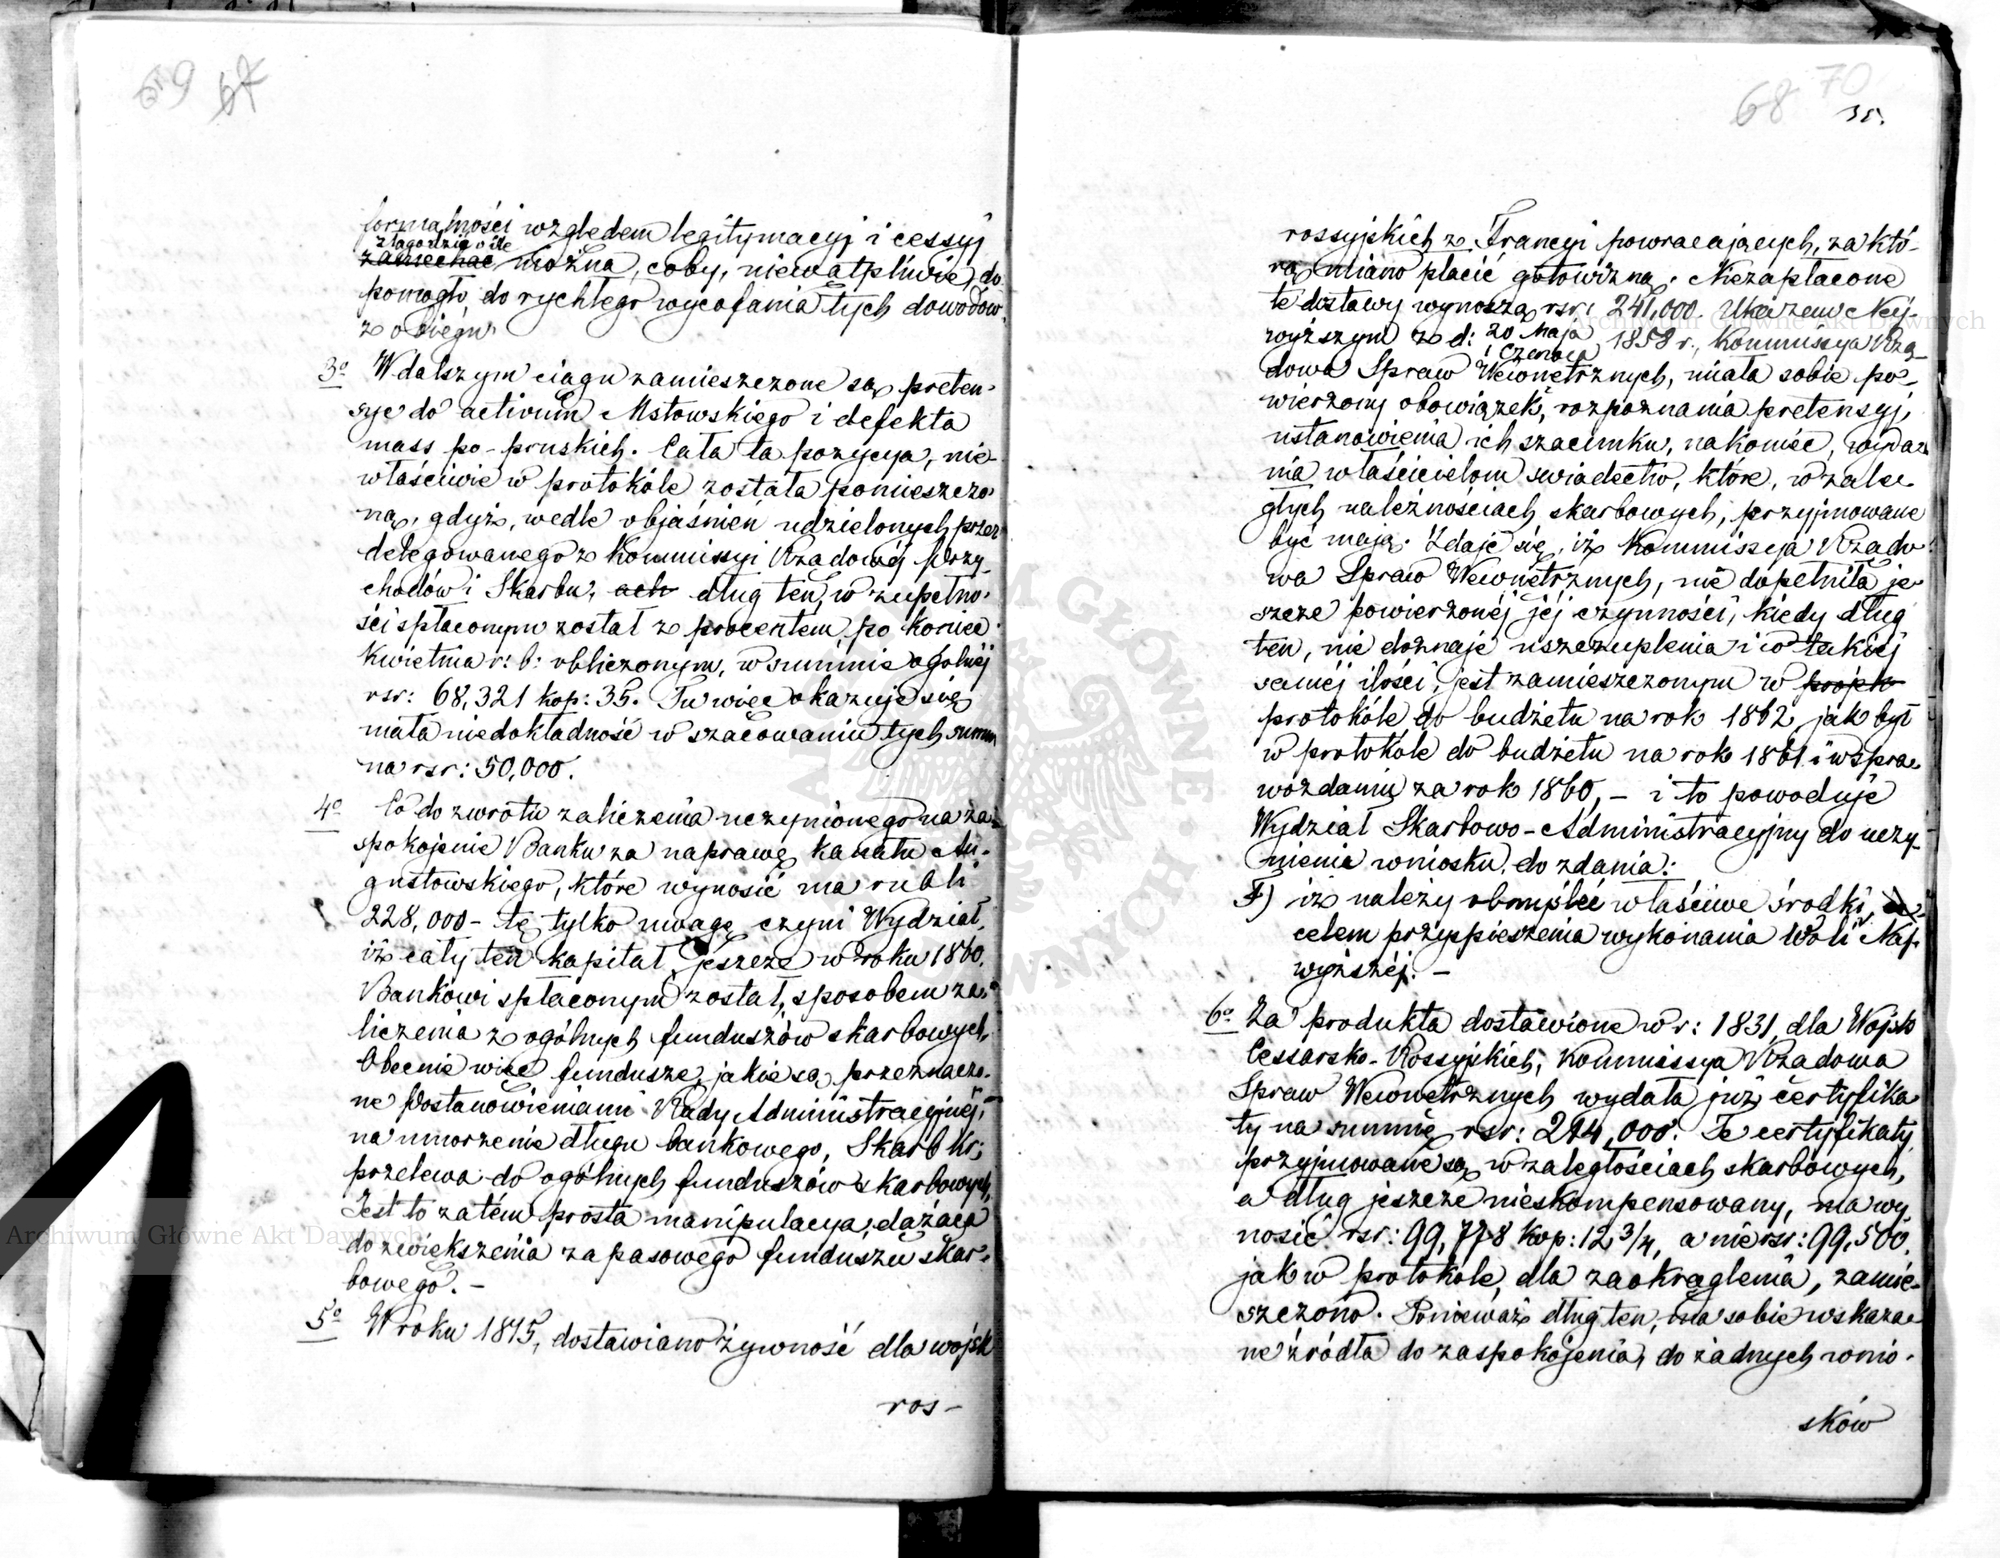 69 67
formalności względem legitymacyj i cessyj
złagodzić
zaniechać można, coby, niewątpliwie, do-
pomogło do rychłego wycofania tych dowodów
z obiegu.
3o W dalszym ciągu zamieszczone są preten-
sye do activum Mstowskiego i defekta
mass po-pruskich. Cała ta pozycya, nie-
właściwie w protokóle została pomieszczo-
ną, gdyż, wedle objaśnień udzielonych przez
delegowanego z Kommissyi Rządowéj Przy-
chodów i Skarbu, dług ten, w zupełno-
ści spłaconym został z procentem, po koniec
Kwietnia r: b: obliczonym, w summie ogólnéj
rsr: 68,321 kop: 35. Tu więc okazuje się
mała niedokładność w szacowaniu tych summ
na rsr: 50,000.
4o Co do zwrotu zaliczenia uczynionego na za-
spokojenie Banku za naprawę kanału Au-
gustowskiego, które wynosić ma rubli
228,000 – tę tylko uwagę czyni Wydział,
iż cały ten kapitał jeszcze w roku 1860.
Bankowi spłaconym został, sposobem za-
liczenia z ogólnych funduszów skarbowych.
Obecnie więc fundusze, jakie są przeznaczo-
ne Postanowieniami Rady Administracyjnéj,
na umorzenie długu bankowego, Skarb Kr:
przelewa do ogólnych funduszów skarbowych.
Jest to zatém prosta manipulacya, dążąca
do zwiększenia zapasowego funduszu skar-
bowego. –
5o W roku 1815, dostawiano żywność dla wojsk
ros-
68 70
35.
rossyjskich z Francyi powracających, za któ-
rą miano płacić gotowizną. Niezapłacone
te dostawy wynoszą rsr: 241,000. Ukazem Naj-
wyższym z d: 20 Maja 1858 r., Kommissya Rzą-
1 Czerwca
dowa Spraw Wewnętrznych, miała sobie po-
wierzony obowiązek, rozpoznania pretensyj,
ustanowienia ich szacunku, nakoniec, wyda-
nia właścicielom świadectw, które, w zale-
głych należnościach skarbowych, przyjmowane
być mają. Zdaje się, iż Kommissya Rządo-
wa Spraw Wewnętrznych, nie dopełniła je-
szcze powierzonéj jéj czynności, kiedy dług
ten, nie doznaje uszczuplenia i w takiéj
saméj ilości, jest zamieszczonym w projek
protokóle do budżetu na rok 1862, jak był
w protokóle do budżetu na rok 1861 i w spra-
wozdaniu za rok 1860, – i to powoduje
Wydział Skarbowo-Administracyjny do uczy-
nienia wniosku, do zdania:
F) iż należy obmyśleć właściwe środki,
celem przyspieszenia wykonania Woli Naj-
wyższéj. –
6o Za produkta dostawione w r: 1831, dla Wojsk
Cessarsko-Rossyjskich, Kommissya Rządowa
Spraw Wewnętrznych wydała już certyfika-
ty na summę rsr: 294,000. Te certyfikaty
przyjmowane są w zaległościach skarbowych,
a dług jeszcze nieskompensowany, ma wy-
nosić rsr: 99,778 kop: 12 3/4, a nie rsr: 99,500.
jak w protokóle, dla zaokrąglenia, zamie-
szczono. Ponieważ dług ten, ma sobie wskaza-
ne źródła do zaspokojenia, do żadnych wnio-
sków
Archiwum Główne Akt Dawnych
Archiwum Główne Akt Dawnych
ARCHIWUM GŁÓWNE AKT DAWNYCH